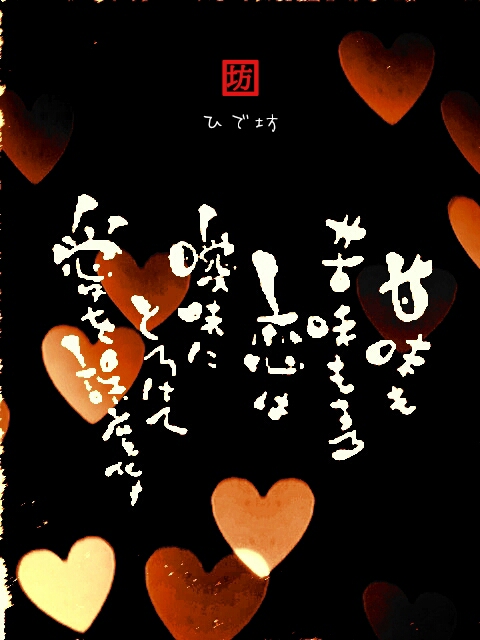 坊
ひで坊
甘味も
苦味もある
恋は
曖昧に
とろけて
愛を誤魔化す